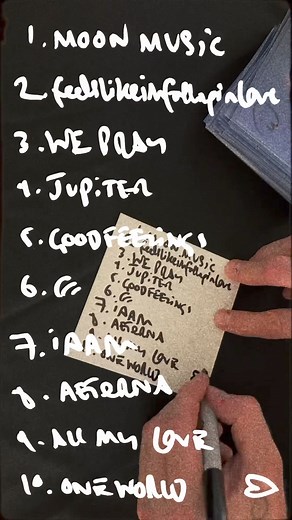 1. MOON MUSIC
2. feelslikeimfallinginlove
3. WE PRAY
4. JUPITER
5. GOOD FEELINGS
6.
7. iAAM
8. AETERNA
9. ALL MY LOVE
10. ONE WORLD
MUSIC
feelslikeimfallinginlove
3. WE PRAY
JUPITER
5. GOOD FEELINGS
6.
7. iAAM
8. AETERNA
MY LOVE
ONE WORLD